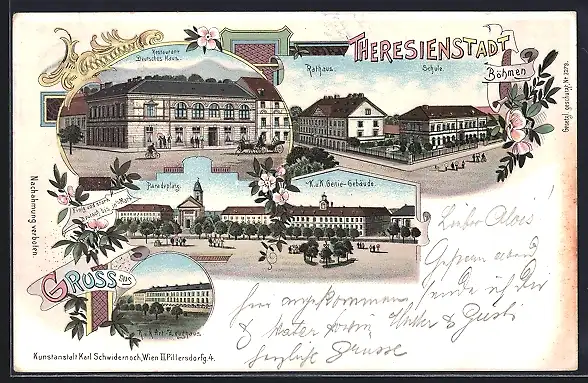 Restaurant
Deutsches Haus.
THERESIENSTADT
Böhmen
Rathaus.
Schule.
Gesetzl. geschützt Nr.
Nachahmung verboten.
Paradeplatz.
K.u.K. Genie-Gebäude.
GRUSS aus
Kunstanstalt Karl Schwidernoch, Wien II. Pillersdorfg. 4.
Lieber Alois!
Gestern abend
hier angekommen sende ich dir
& Vater sowie Mutter & Gusti
herzliche Grüsse